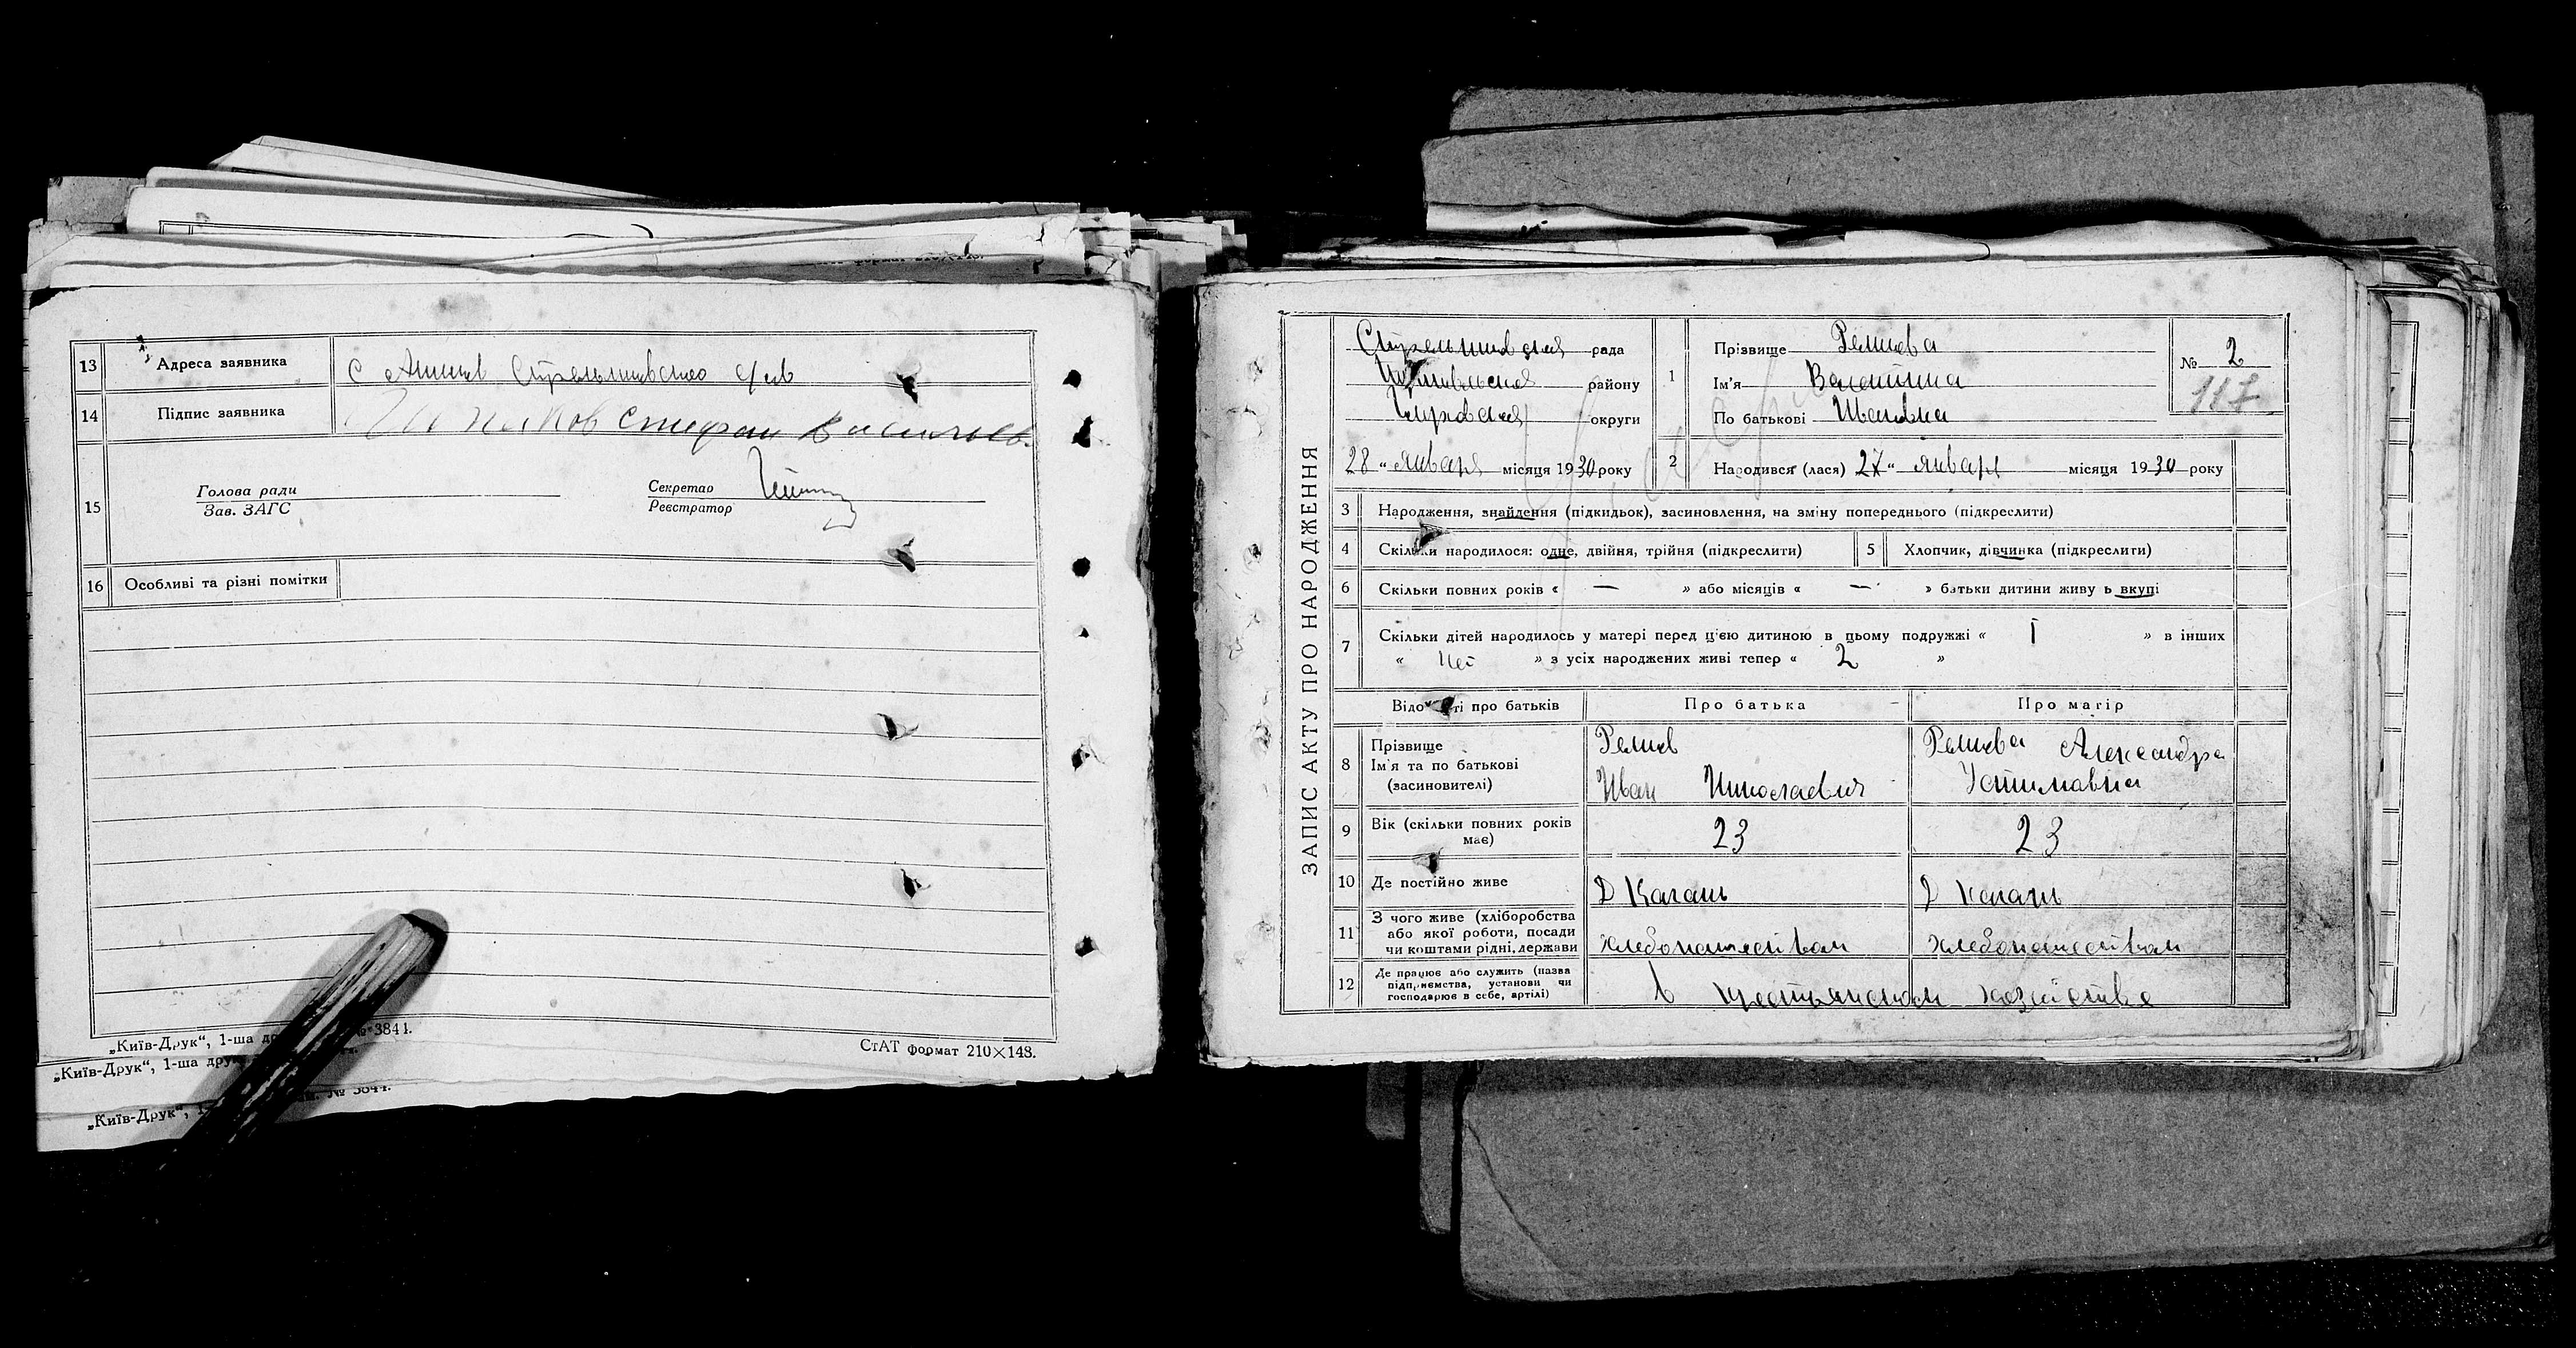 13 Адреса заявника с
14 Підпис заявника Стефан
15 Голова ради Секретар
Зав. ЗАГС Реєстратор
16 Особливі та різні помітки
„Київ-Друк“, 1-ша № 3841.
СтАТ формат 210×148.
„Київ-Друк“, 1-ша
„Київ-Друк“, № 3841.
ЗАПИС АКТУ ПРО НАРОДЖЕННЯ
рада
району
округи
28 „ января місяця 1930 року
1 Прізвище
Ім'я Валентина
По батькові Ивановна
№ 2
117
2 Народився (лася) 27 „ января місяця 1930 року
3 Народження, знайдення (підкидьок), засиновлення, на зміну попереднього (підкреслити)
4 Скільки народилося: одне, двійня, трійня (підкреслити) 5 Хлопчик, дівчинка (підкреслити)
6 Скільки повних років « — » або місяців « — » батьки дитини живуть вкупі
7 Скільки дітей народилось у матері перед цією дитиною в цьому подружжі « 1 » в інших
« нет » з усіх народжених живі тепер « 2 »
Відомості про батьків Про батька Про матір
8 Прізвище
Ім'я та по батькові
(засновителі)
Иван Николаевич
Александра
Устимовна
9 Вік (скільки повних років має) 23 23
10 Де постійно живе Д
11 З чого живе (хліборобства
або якої роботи, посади
чи коштами рідні, держави
хлебопашеством хлебопашеством
12 Де працює або служить (назва
підприємства, установи чи
господарює в себе, артілі)
в крестьянском хозяйстве